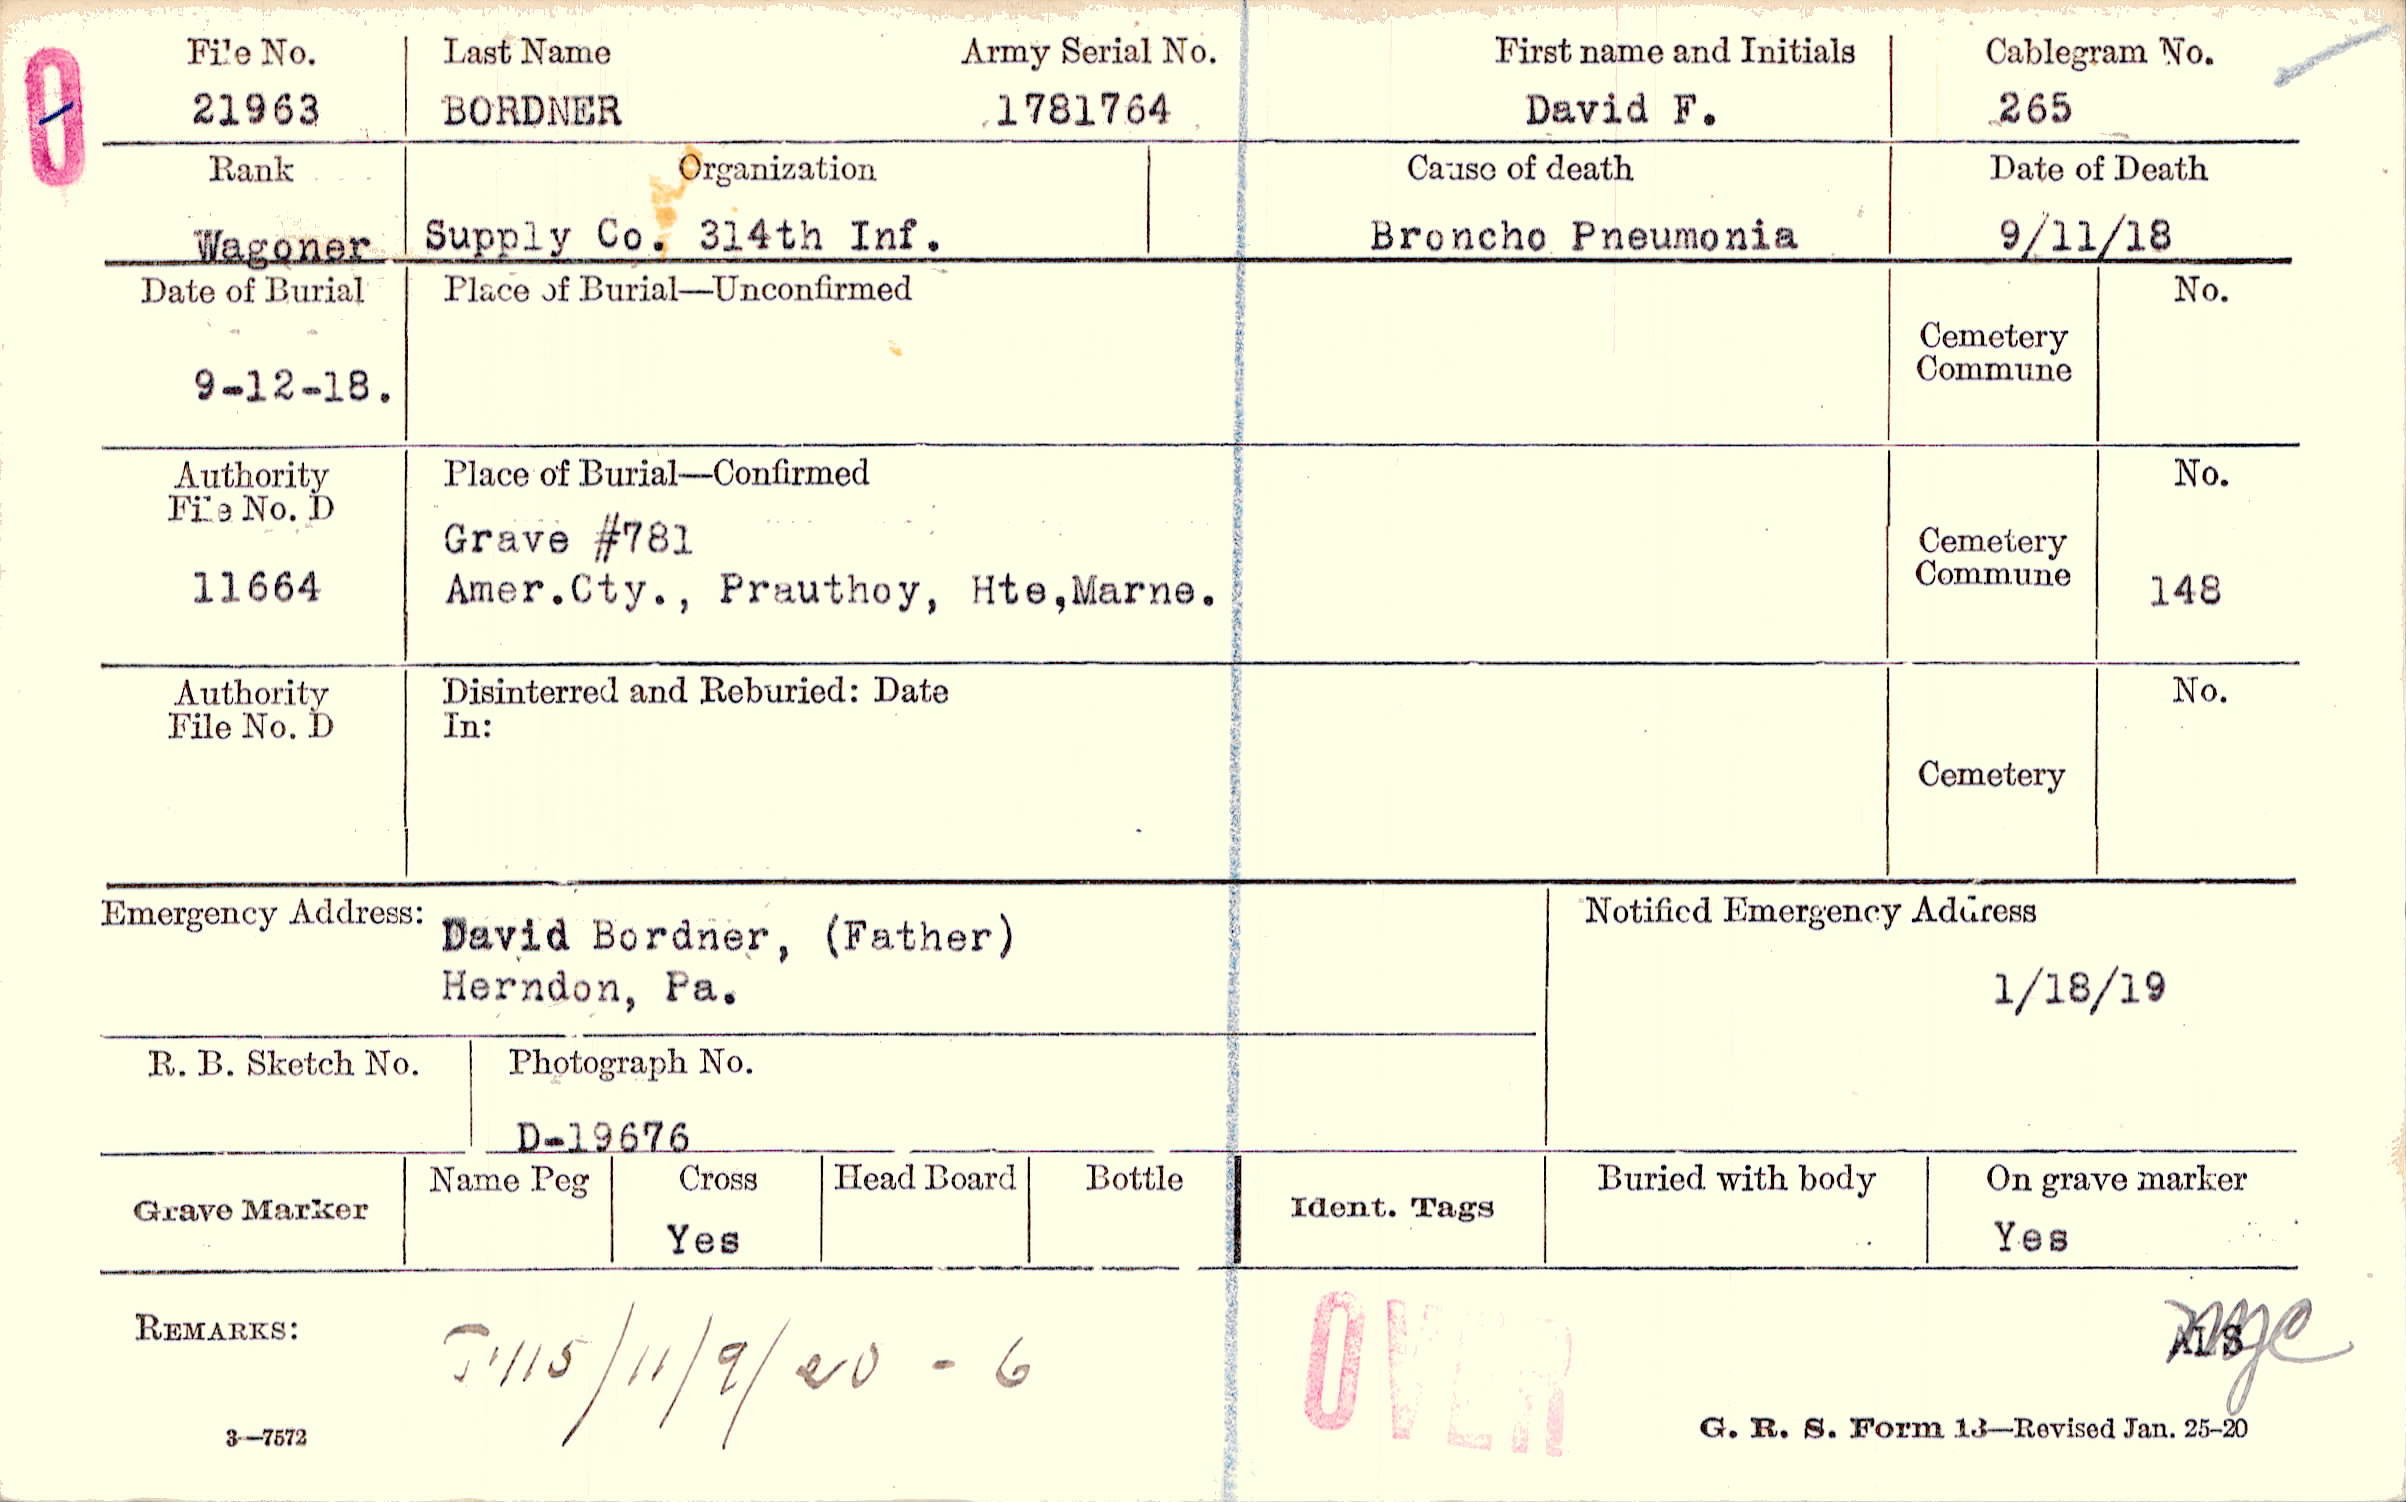 File No. Last Name Army Serial No. First name and Initials Cablegram No.
0 21963 BORDNER 1781764 David F. 265
Rank Organization Cause of death Date of Death
Wagoner Supply Co. 314th Inf. Broncho Pneumonia 9/11/18
Date of Burial Place of Burial—Unconfirmed No.
Cemetery
Commune
9-12-18.
Authority Place of Burial—Confirmed No.
File No. D
Grave #781 Cemetery
11664 Amer.Cty., Prauthoy, Hte,Marne. Commune 148
Authority Disinterred and Reburied: Date No.
File No. D In:
Cemetery
Emergency Address: David Bordner, (Father) Notified Emergency Address
Herndon, Pa. 1/18/19
R. B. Sketch No. Photograph No.
D-19676
Grave Marker Name Peg Cross Head Board Bottle Ident. Tags Buried with body On grave marker
Yes Yes
REMARKS: /11/9/20 - 6 OVER ALS
3—7572 G. R. S. Form 13—Revised Jan. 25-20